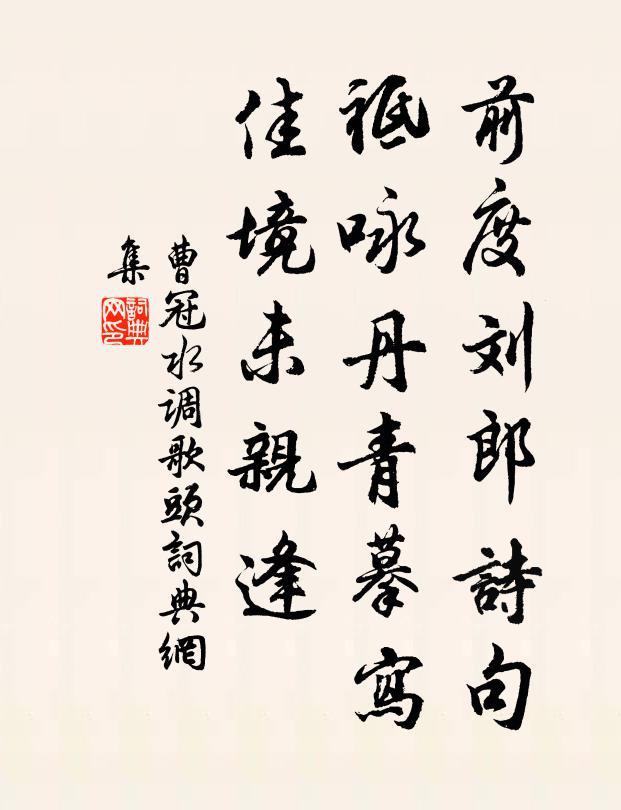 前度刘郎詩句
祗咏丹青摹寫
佳境未親逢
曹冠水调歌頭詞典網
集
詞典网印